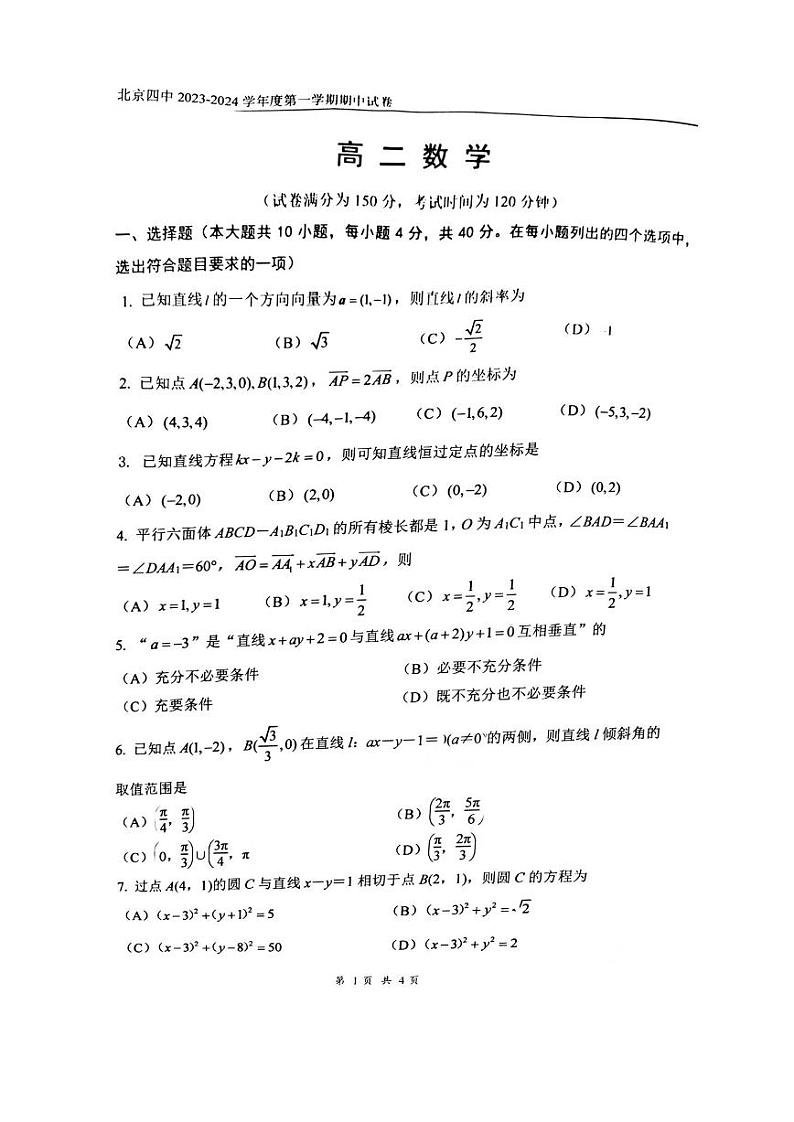 北京四中 2023-2024 学年度第一学期期中试卷
高 二 数 学
（试卷满分为 150 分，考试时间为 120 分钟）
一、选择题（本大题共 10 小题，每小题 4 分，共 40 分。在每小题列出的四个选项中，
选出符合题目要求的一项）
1. 已知直线 l 的一个方向向量为 a = (1,−1)，则直线 l 的斜率为
（A）√2 （B）√3 （C）−√2/2 （D）-1
2. 已知点 A(−2,3,0), B(1,3,2)，AP = 2AB，则点 P 的坐标为
（A）(4,3,4) （B）(−4,−1,−4) （C）(−1,6,2) （D）(−5,3,−2)
3. 已知直线方程 kx − y − 2k = 0，则可知直线恒过定点的坐标是
（A）(−2,0) （B）(2,0) （C）(0,−2) （D）(0,2)
4. 平行六面体 ABCD－A₁B₁C₁D₁ 的所有棱长都是 1，O 为 A₁C₁ 中点，∠BAD＝∠BAA₁
＝∠DAA₁＝60°，AO = AA₁ + xAB + yAD，则
（A）x=1, y=1 （B）x=1, y=1/2 （C）x=1/2, y=1/2 （D）x=1/2, y=1
5. “a = −3”是“直线 x + ay + 2 = 0 与直线 ax + (a + 2)y + 1 = 0 互相垂直”的
（A）充分不必要条件 （B）必要不充分条件
（C）充要条件 （D）既不充分也不必要条件
6. 已知点 A(1,−2)，B(√3/3,0) 在直线 l：ax－y－1＝ )(a≠0 的两侧，则直线 l 倾斜角的
取值范围是
（A）(π/4，π/3) （B）(2π/3，5π/6)
（C）(0，π/3)∪(3π/4，π （D）(π/3，2π/3)
7. 过点 A(4，1)的圆 C 与直线 x－y＝1 相切于点 B(2，1)，则圆 C 的方程为
（A）(x−3)² +(y+1)² = 5 （B）(x−3)² + y² = √2
（C）(x−3)² +(y−8)² = 50 （D）(x−3)² + y² = 2
第 1 页 共 4 页